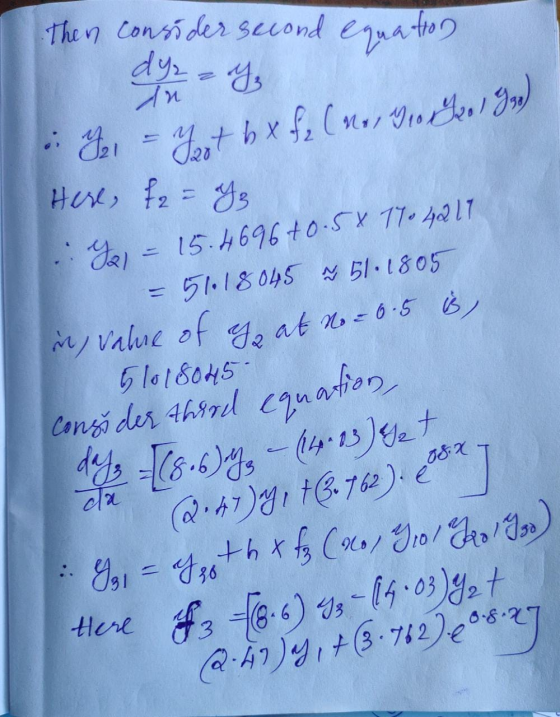 Then consider second equation
dy2/dx = y3
∴ y21 = y20 + h × f2 (x0, y10, y20, y30)
Here, f2 = y3
∴ y21 = 15.4696 + 0.5 × 77.4217
= 51.18045 ≈ 51.1805
in, value of y2 at x0 = 0.5 is,
51.18045.
consider third equation,
dy3/dx = [(8.6)y3 - (14.03)y2 +
(2.47)y1 + (3.762). e^0.8.x]
∴ y31 = y30 + h × f3 (x0, y10, y20, y30)
Here f3 = [(8.6) y3 - (14.03)y2 +
(2.47)y1 + (3.762).e^0.8.x]